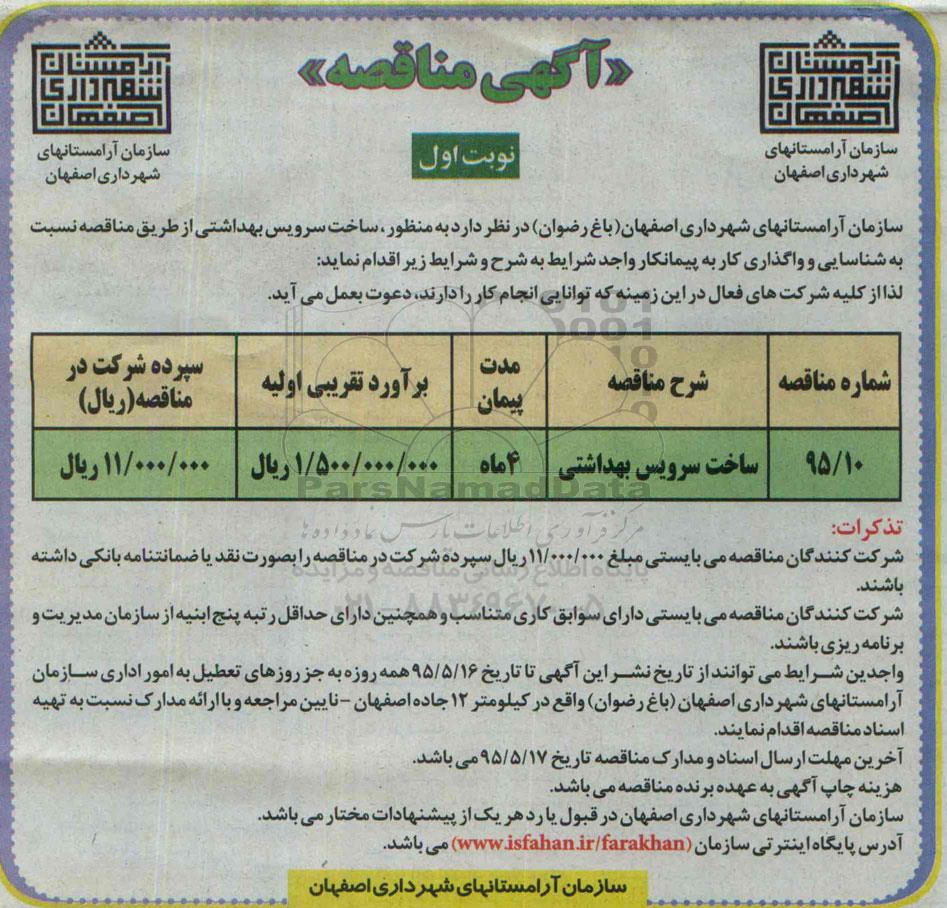 «آگهی مناقصه»
آرامستان
شهرداری
اصفهان
سازمان آرامستانهای
شهرداری اصفهان
آرامستان
شهرداری
اصفهان
سازمان آرامستانهای
شهرداری اصفهان
نوبت اول
سازمان آرامستانهای شهرداری اصفهان(باغ رضوان) در نظر دارد به منظور ، ساخت سرویس بهداشتی از طریق مناقصه نسبت
به شناسایی و واگذاری کار به پیمانکار واجد شرایط به شرح و شرایط زیر اقدام نماید:
لذا از کلیه شرکت های فعال در این زمینه که توانایی انجام کار را دارند، دعوت بعمل می آید.
شماره مناقصه
شرح مناقصه
مدت
پیمان
برآورد تقریبی اولیه
سپرده شرکت در
مناقصه(ریال)
۹۵/۱۰
ساخت سرویس بهداشتی
۴ماه
۱/۵۰۰/۰۰۰/۰۰۰ ریال
۱۱/۰۰۰/۰۰۰ ریال
ParsNamadData
مرکز فرآوری اطلاعات پارس نماد داده ها
پایگاه اطلاع رسانی مناقصه و مزایده
۰۲۱-۸۸۳۴۹۶۷۰-۵
تذکرات:
شرکت کنندگان مناقصه می بایستی مبلغ ۱۱/۰۰۰/۰۰۰ریال سپرده شرکت در مناقصه را بصورت نقد یا ضمانتنامه بانکی داشته
باشند.
شرکت کنندگان مناقصه می بایستی دارای سوابق کاری متناسب و همچنین دارای حداقل رتبه پنج ابنیه از سازمان مدیریت و
برنامه ریزی باشند.
واجدین شرایط می توانند از تاریخ نشر این آگهی تا تاریخ ۹۵/۵/۱۶ همه روزه به جز روزهای تعطیل به امور اداری سازمان
آرامستانهای شهرداری اصفهان (باغ رضوان) واقع در کیلومتر ۱۲ جاده اصفهان - نایین مراجعه و با ارائه مدارک نسبت به تهیه
اسناد مناقصه اقدام نمایند.
آخرین مهلت ارسال اسناد و مدارک مناقصه تاریخ ۹۵/۵/۱۷ می باشد.
هزینه چاپ آگهی به عهده برنده مناقصه می باشد.
سازمان آرامستانهای شهرداری اصفهان در قبول یا رد هر یک از پیشنهادات مختار می باشد.
آدرس پایگاه اینترنتی سازمان (www.isfahan.ir/farakhan) می باشد.
سازمان آرامستانهای شهرداری اصفهان